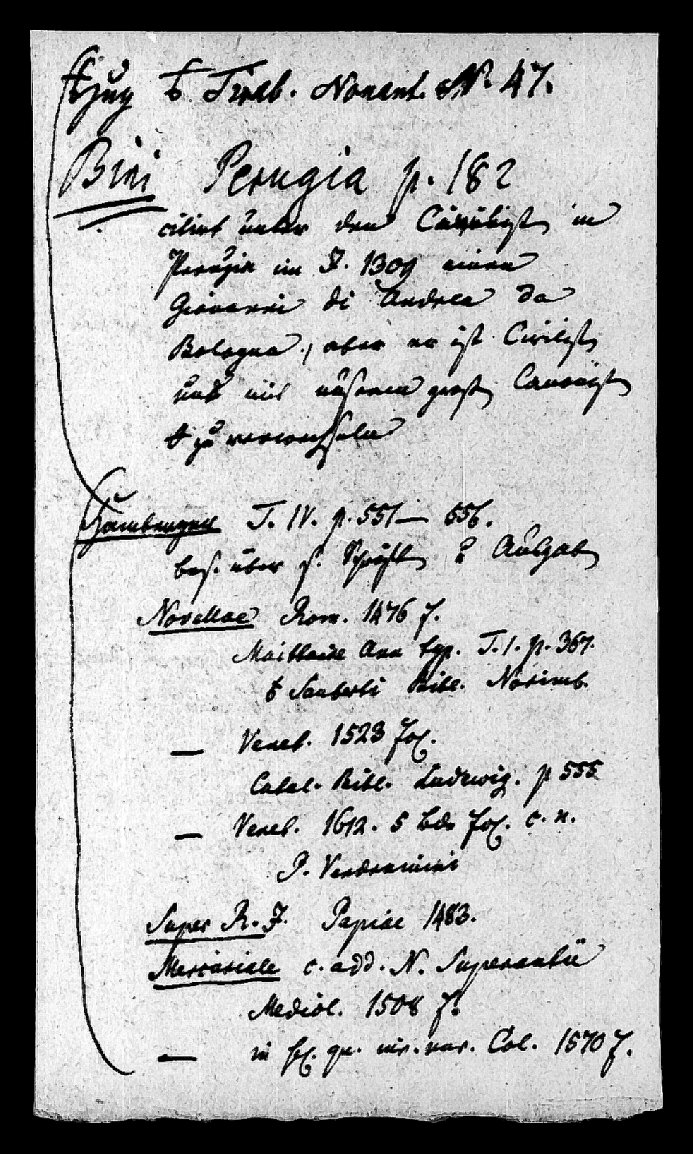 Tirab. Nonant. N. 47.
Bini Perugia p. 182
citirt unter den Civilisten in
Perugia im J. 1309 einen
Giovanni di Andrea da
Bologna, aber er ist Civilist,
und mit unserem großen Canonisten
zu verwechseln
T. IV. p. 551 — 556.
bes. über s. Schriften u Ausgaben
Novellae Rom. 1476 f.
Maittaire Ann typ. T. 1. p. 367.
Sauberti Bibl. Norimb.
— Venet. 1523 fol.
Catal. Bibl. Ludewig. p 555
— Venet. 1612. 5 Bde fol. c. n.
P. Vendramini
Super R. J. Papiae 1483.
Mercuriale c. add. N. Superantii
Mediol. 1508 f.
— in qu. Col. 1570 f.